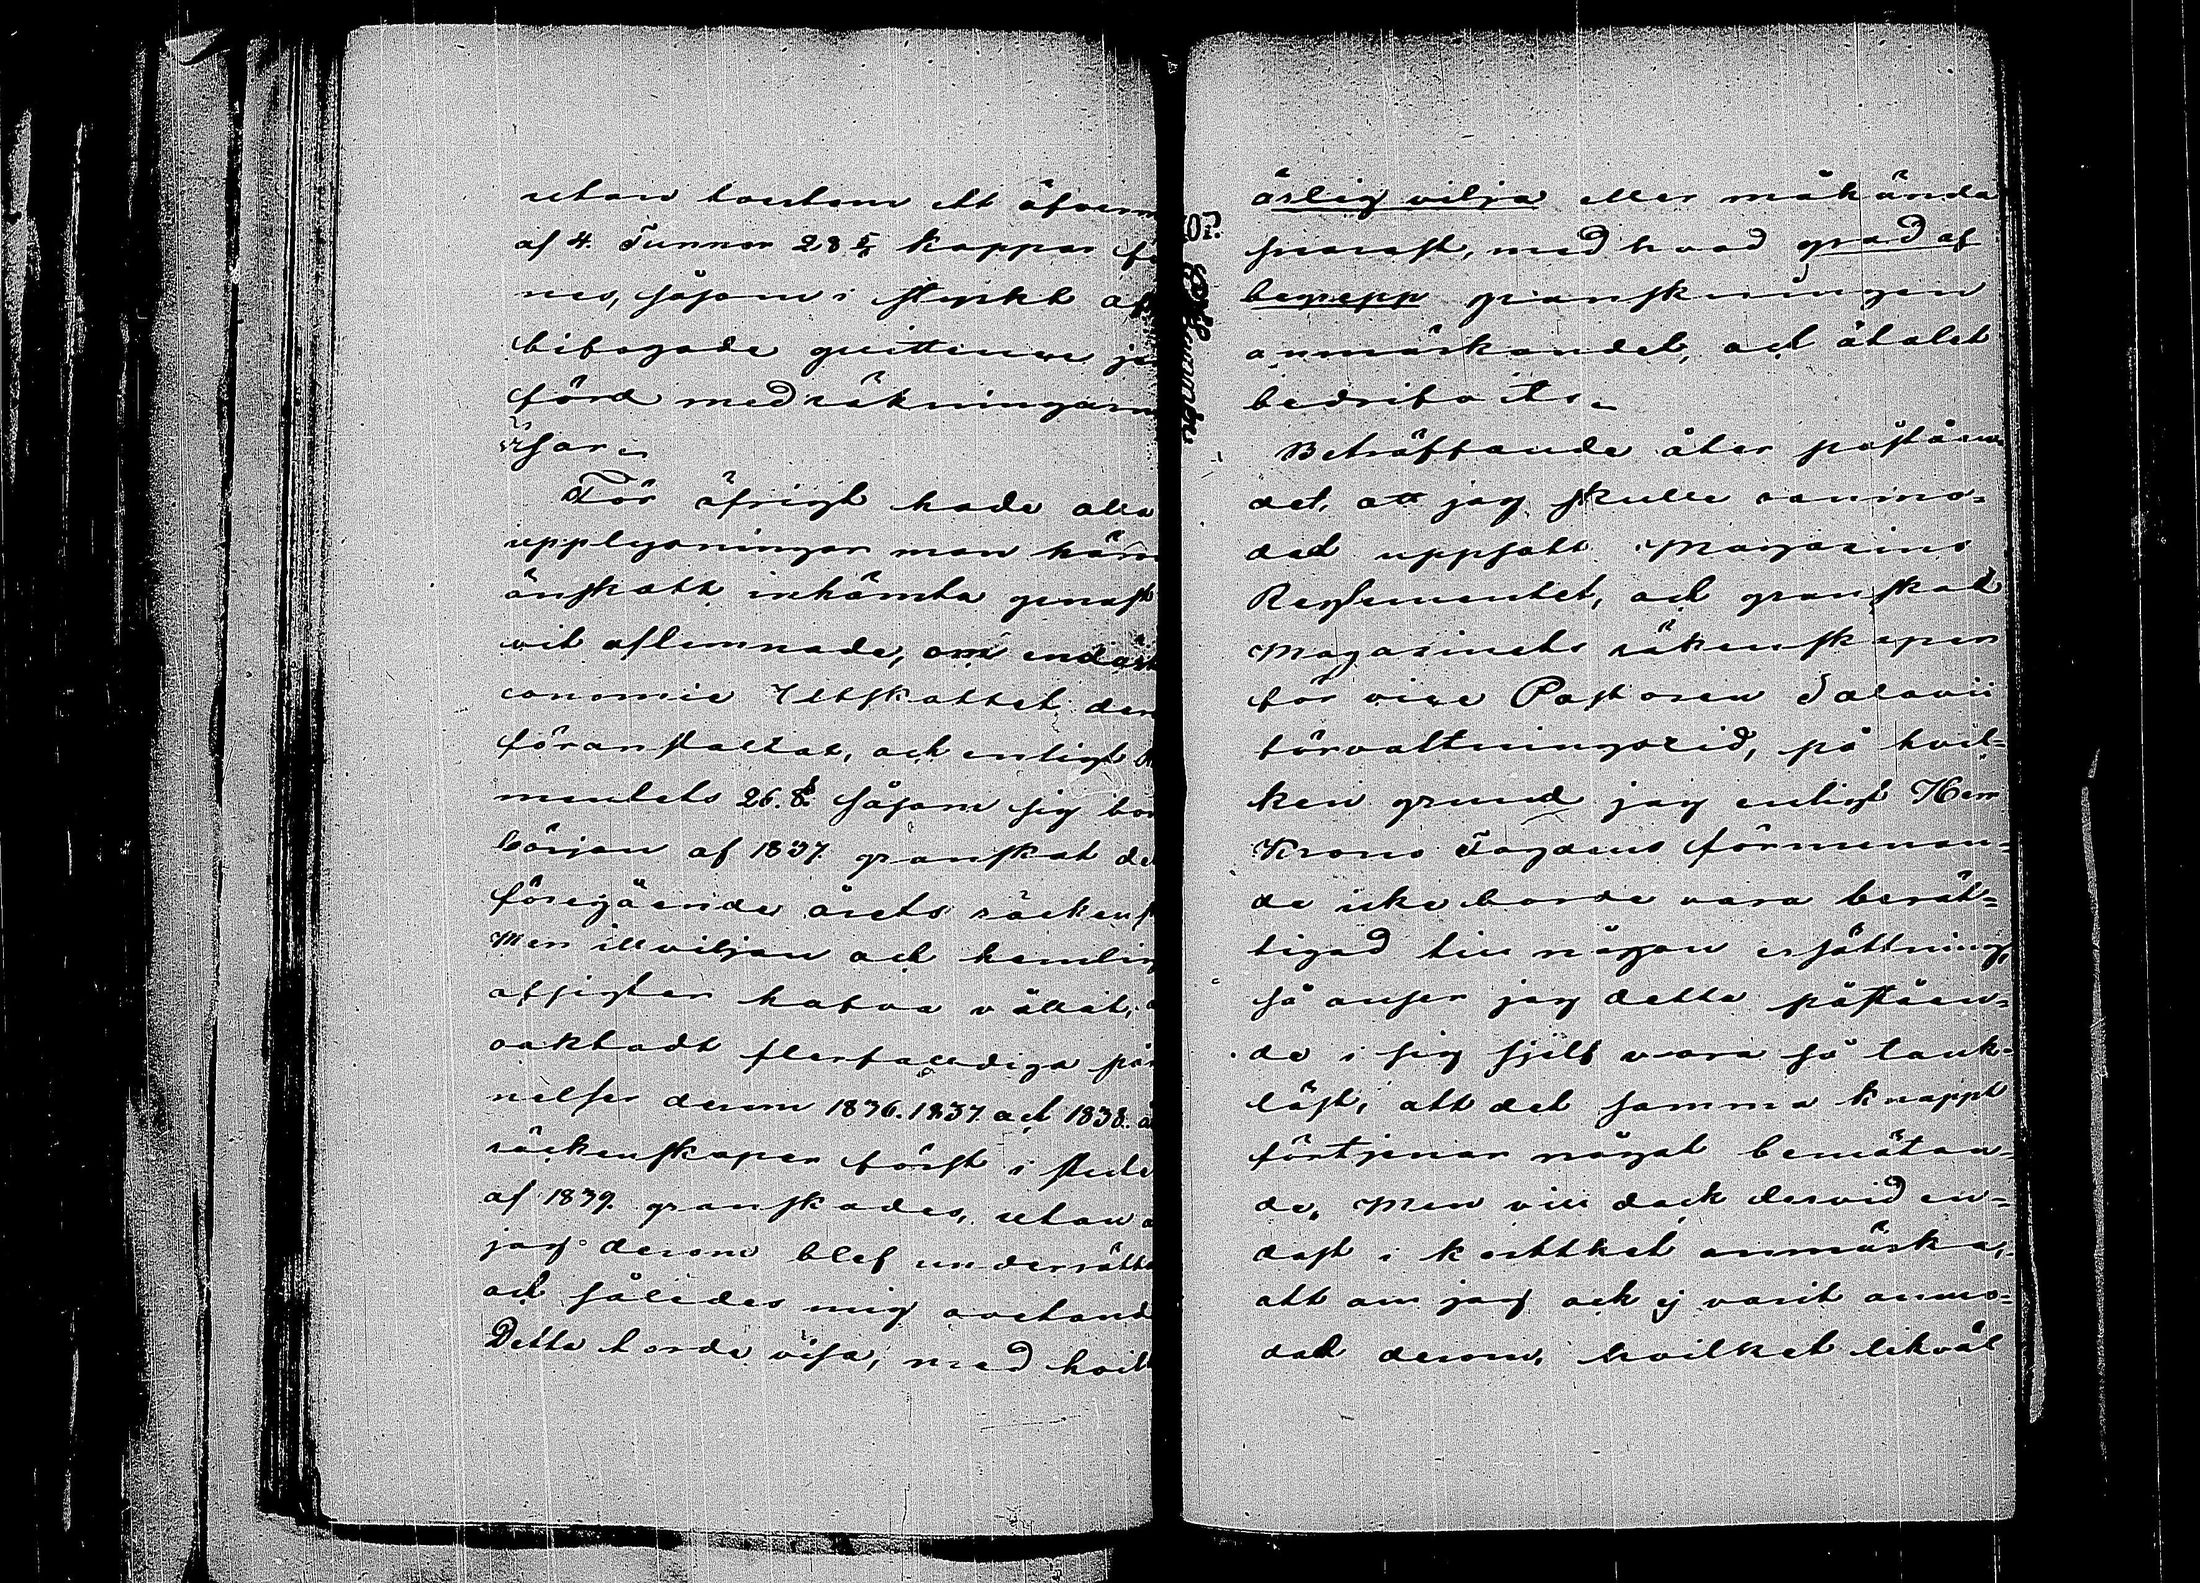 utan tvertom ett öfvers
af 4. Tunnor 28 5/ kappar
nes, såsom i styckt af
bifogade quittence je
förd med räkningarn
visar.
För öfrigt hade alla
upplysningar man här
önskatt inhämta genast
vit aflemnade, om endast
conomie Utskottet den
föranstaltat, och enligt
mentets 26. §. såsom sig bor
början af 1837. granskat de
föregående årets räckens
Men illviljan och hemlig
afsigter hafva vållat,
oaktadt flerfalldiga på
nelser derom 1836. 1837. och 1838. å
räckenskaper först i slute
af 1839. granskades, utan a
jag derom blef underrätta
och således mig ovetand
Detta torde visa, med hvilk
ärlig vilja eller måhända
snarast, med hvad grad af
begrepp granskningen
anmärkandet, och åtalet
bedrifvits.
Beträffande åter påståen
det, att jag skulle oanmo-
dad uppsatt Magasins
Reglementet, och granskad
Magasinets räkenskaper
för vice Pastoren Salovii
förvaltningstid, på hvil-
ken grund jag enligt Herr
Krono Fogdens förmenan-
de icke borde vara berät-
tigad till någon ersättning,
så anser jag detta påståen-
de i sig sjelf vara så lank-
löst, att det samma knappt
förtjenar något bemötan-
de. Men vill dock dervid en-
dast i korthet anmärka,
att om jag ock ej varit anmo-
dad derom, hvilket likväl